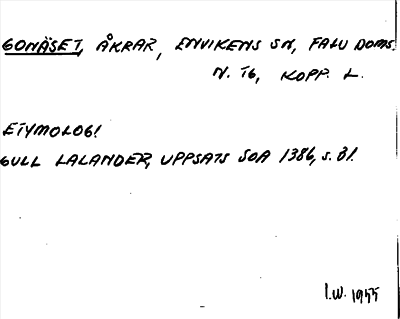 GONÄSET, ÅKRAR, ENVIKENS SN, FALU DOMS.
N. TG, KOPP. L.
ETYMOLOGI
GULL LALANDER, UPPSATS SOA 1386, S. 31.
I.W. 1955